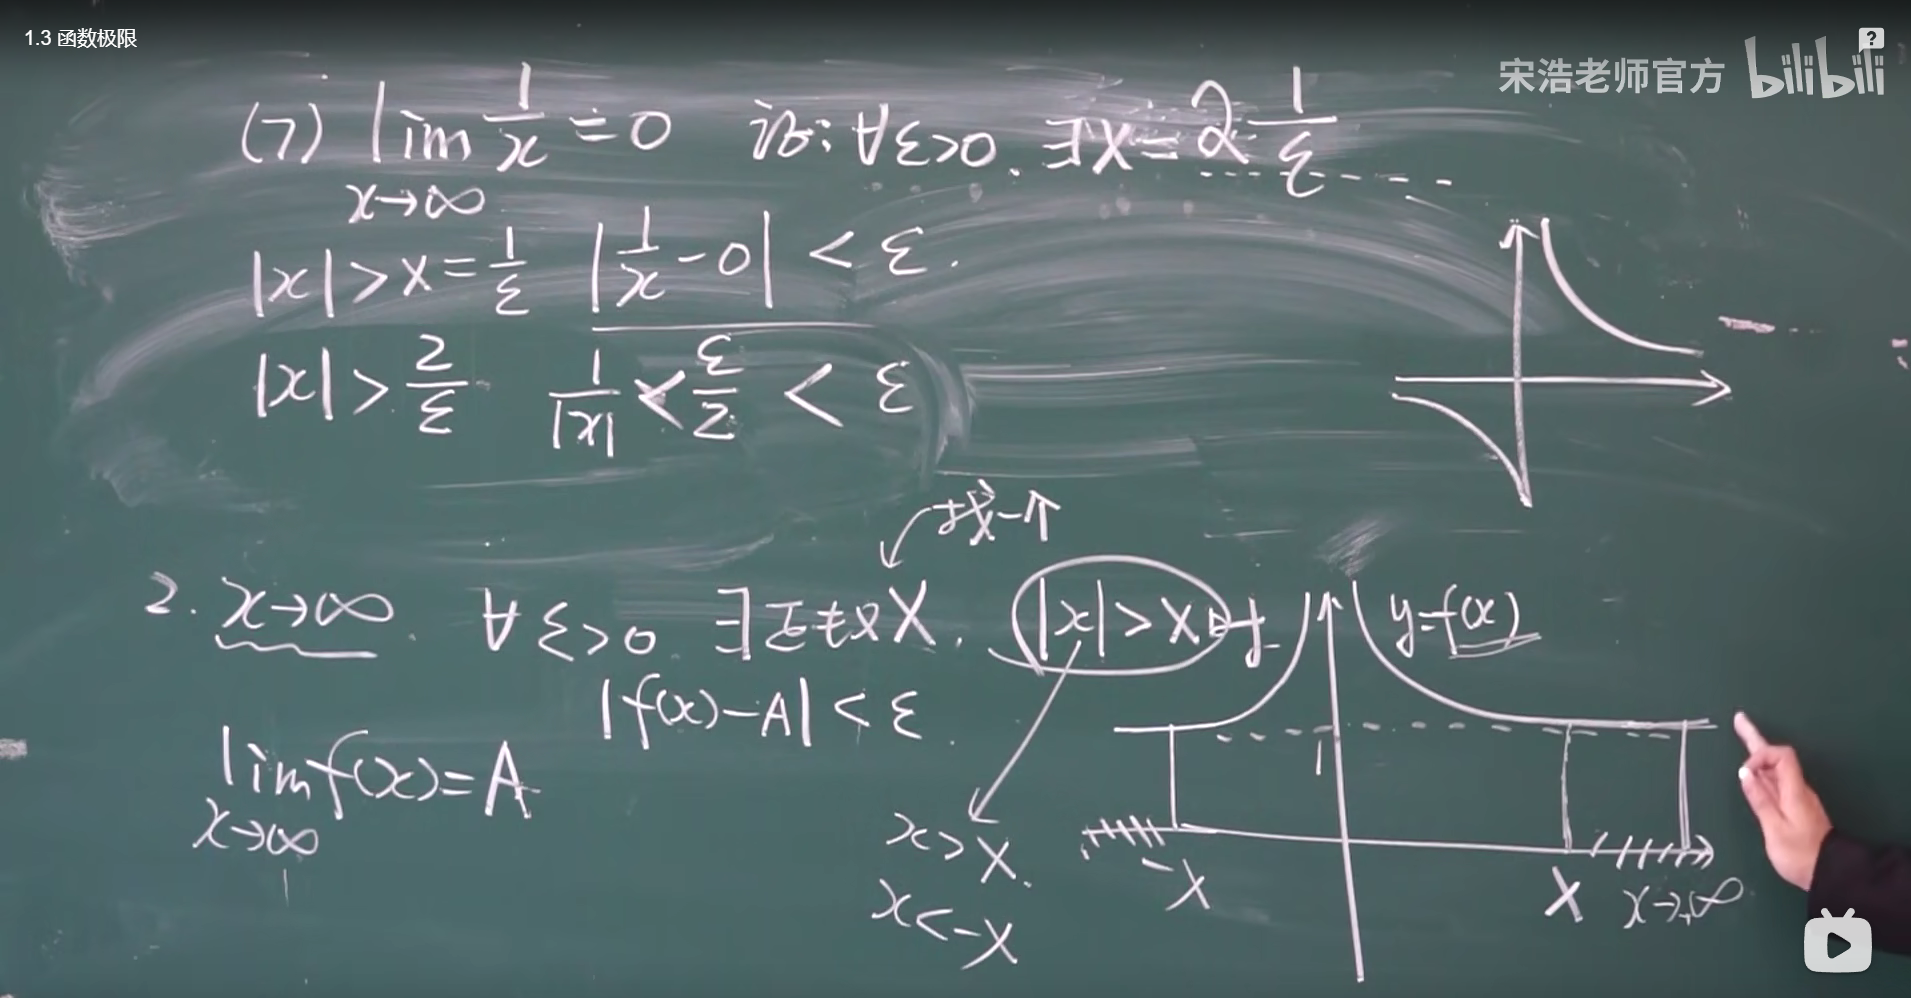 1.3 函数极限
宋浩老师官方 bilibili
(7) lim 1/x = 0 证: ∀ε>0. ∃X = 2 1/ε
x→∞
|x|>X=1/ε |1/x-0| < ε.
|x|>2/ε 1/|x| < ε/2 < ε
找一个
2. x→∞. ∀ε>0 ∃正数X. |x|>X时
y=f(x)
|f(x)-A|<ε.
lim f(x)=A
x→∞
1
x>X.
x<-X
-X
X
x→+∞